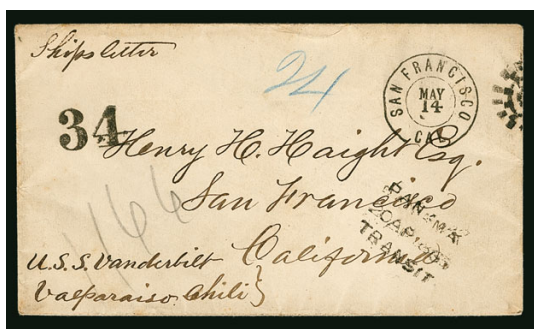 Ships letter
24
SAN FRANCISCO
MAY
14
CAL
34
Henry H. Haight Esq.
San Francisco
California
PANAMA
TRANSIT
466
U.S.S. Vanderbilt
Valparaiso Chili